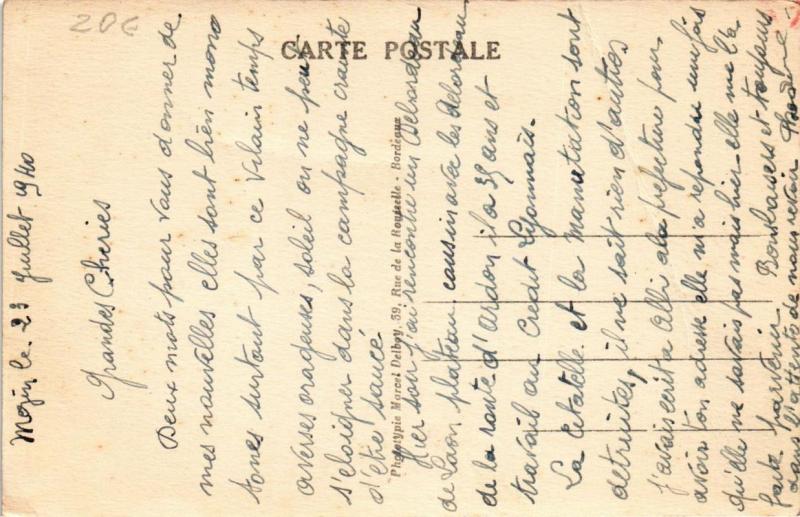 20c
CARTE POSTALE
Phototypie Marcel Delboy, 39, Rue de la Rousselle - Bordeaux
le 23 Juillet 1940
Grandes Cheries
Deux mots pour vous donner de
mes nouvelles elles sont bien mono
tones surtout par ce vilain temps
averses orageuses, soleil on ne peut
s'eloigner dans la campagne crainte
d'etre saucé
Hier soir j'ai rencontre un
de Laon plateau, cousin avec les
de la route d'Ardon il a 39 ans et
travail au Credit Lyonnais.
La Citatelle et la Manutation sont
detruites, il ne sait rien d'autres
j'avais ecrit a a la prefecture pour
avoir ton adresse elle m'a repondu une fois
qu'elle ne savais pas mais hier elle me l'a
faite parvenir Bons baisers et toujours
dans l'attente de nous revoir